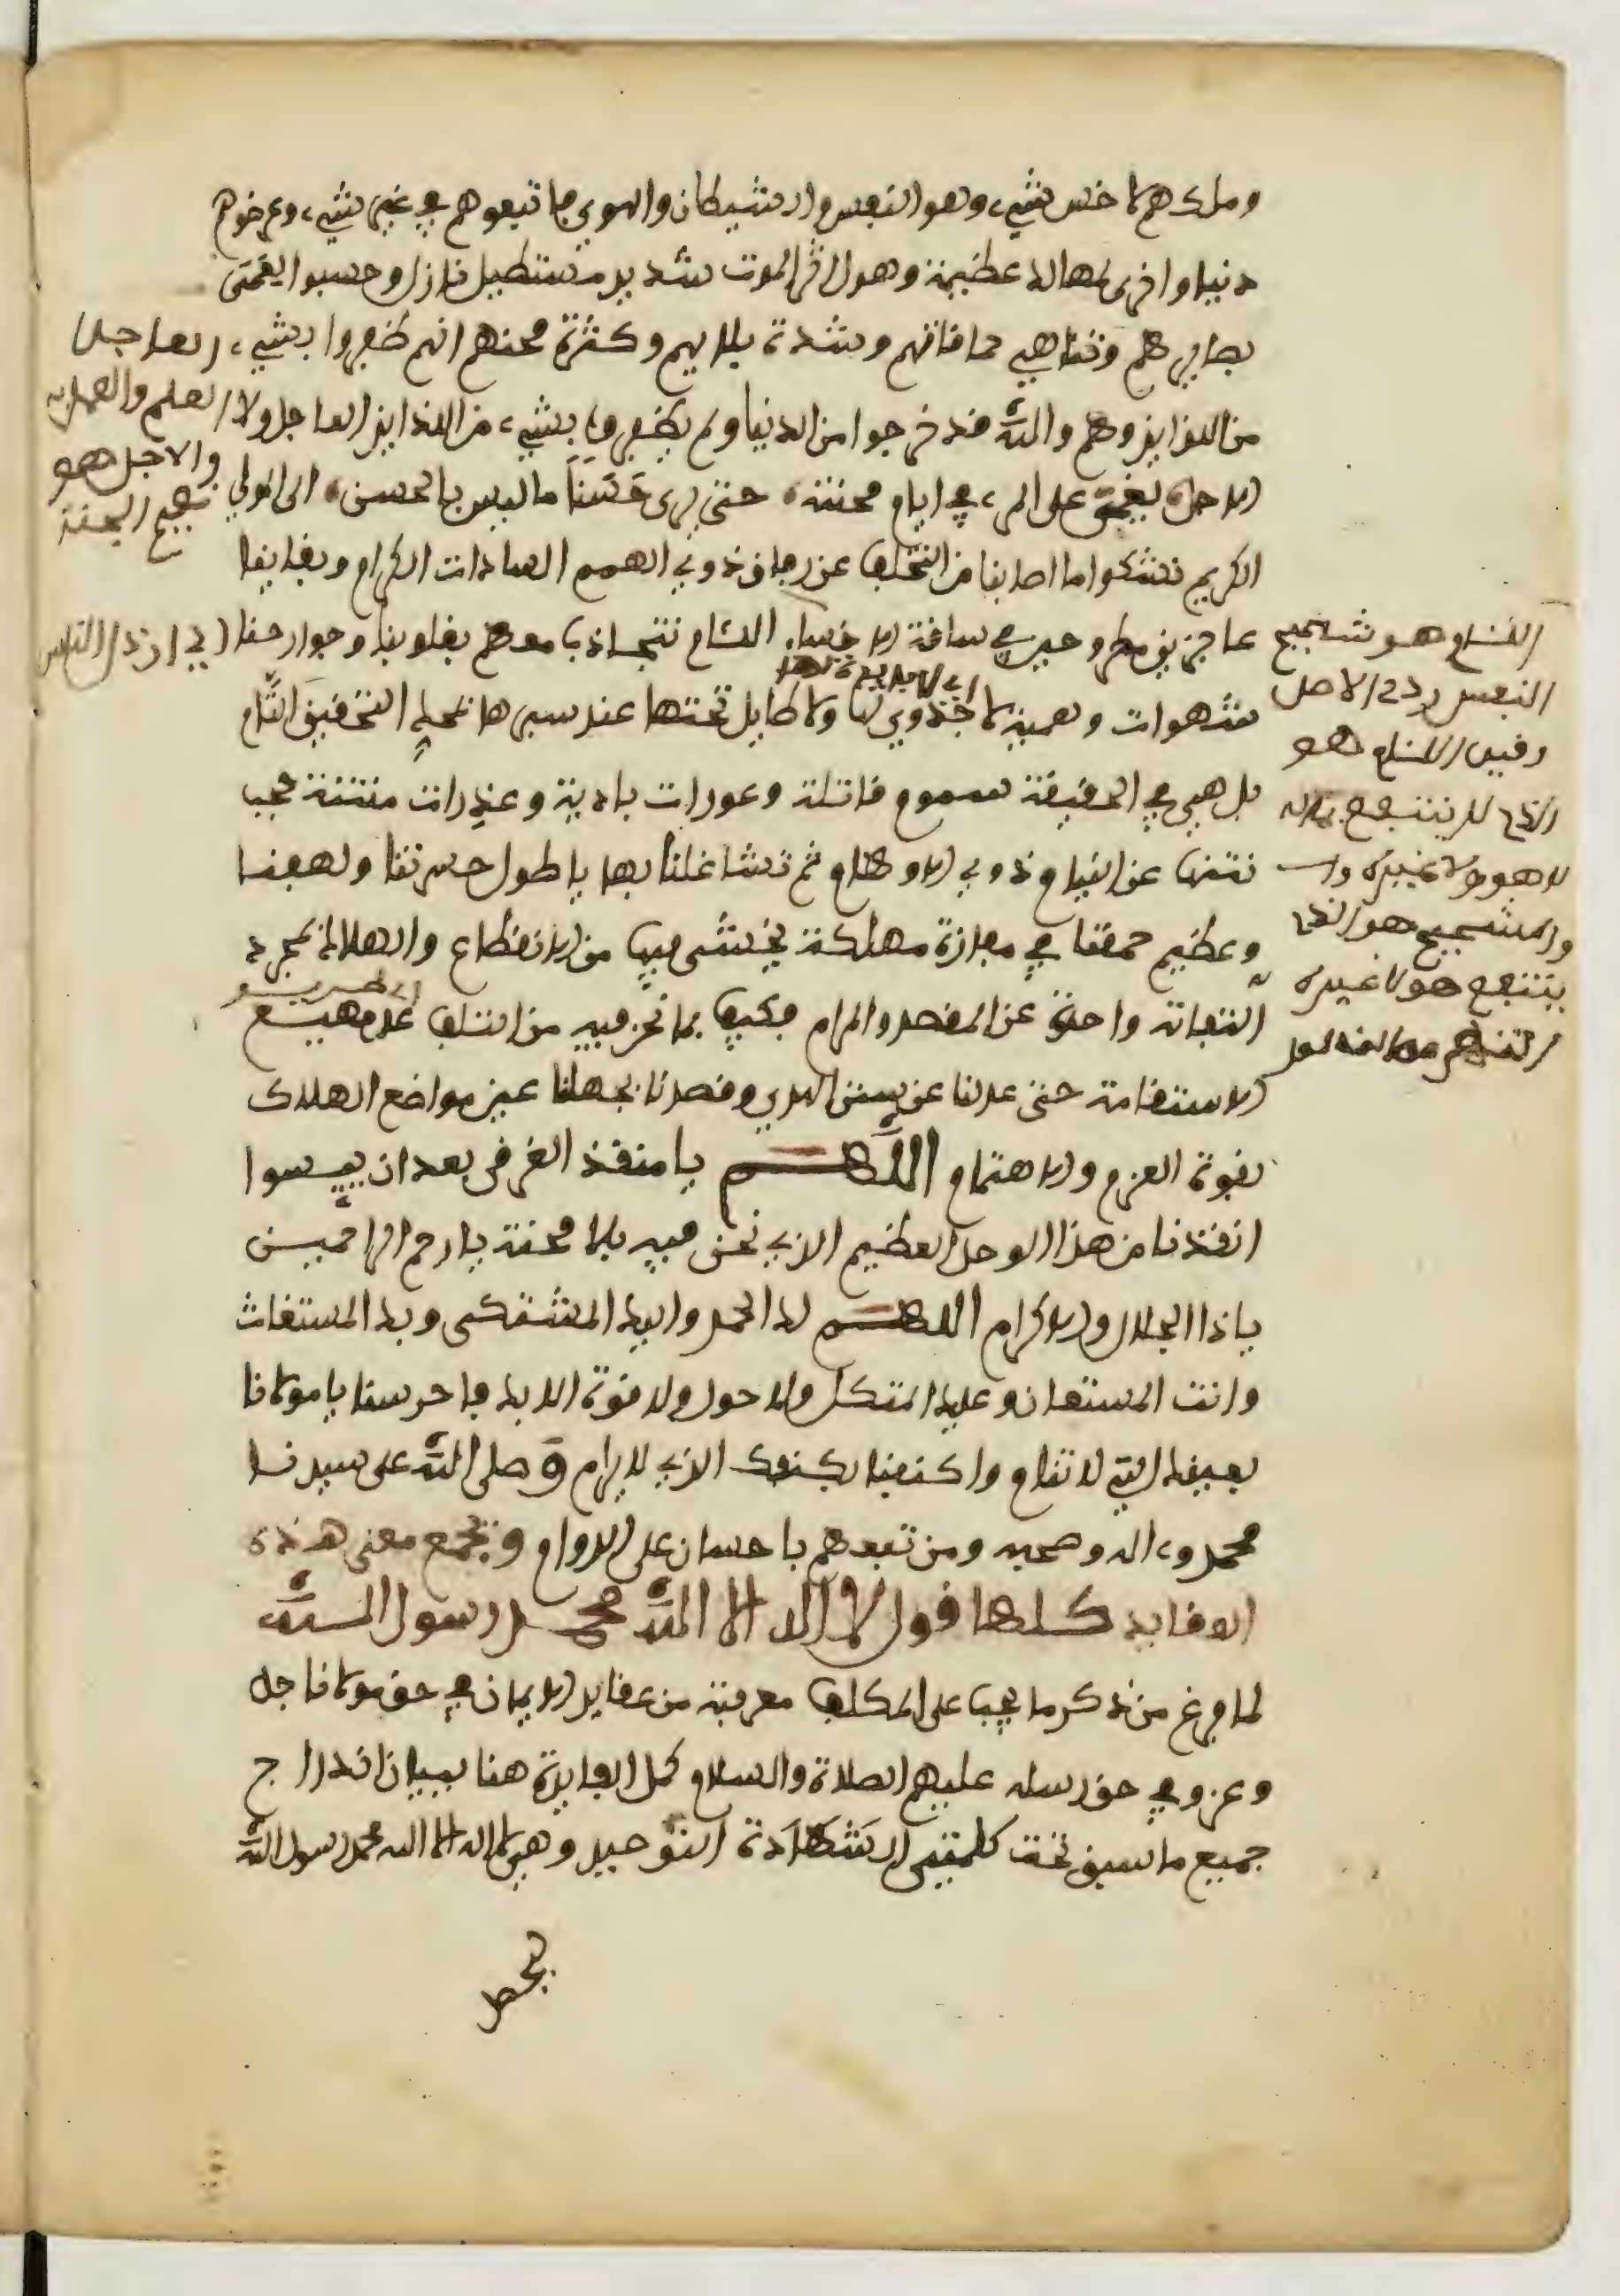 وملكهم لاخس شيء وهو النفس والشيطان والهوى فاتبعوهم في غير شيء وعرضوهم
دنيا واخرى لمهالك عظيمة وهول اثر الموت شديد مستطيل نازل وحسبوا لعمى
بصايرهم وتناهي حماقاتهم وشدة بلايهم وكثرة محنهم انهم ظفروا بشيء
من اللذايذ وهم والله قد خرجوا من الدنيا ولم يظفروا بشيء من اللذايذ العاجل ولا
الاجل يغمى على المرء في ايام محنته حتى يرى حسنا ما ليس بالحسن الى المولى
الكريم نشكوا ما اصابنا من التخلف عن رفاق ذوي الهمم السادات الكرام وبقاينا
عاجزين مطروحين في ساقة الاخساء اللئام نتجاذب معهم بقلوبنا وجوارحنا
شهوات وهمية لا جدوى لها ولا طايل تحتها عند سبرها بمحل التحقيق التام
بل هي في الحقيقة سموم قاتلة وعورات بادية وعذرات منتنة حجب
نتنها عن النيام ذوي الاوهام ثم تشاغلنا بها يا طول حسرتنا ولهفنا
وعظيم حمقنا في مفازة مهلكة يخشى فيها من الانقطاع والهلاك بمجرد
التفاتة واحدة عن المقصد والمرام فكيف بما نحن فيه من التلف على مهيع
الاستقامة حتى عدلنا عن سنن الهدى وقصدنا بجهلنا عين مواضع الهلاك
بقوة العزم والاهتمام اللهم يا منقذ الغرقى بعد ان ييسوا
انقذنا من هذا الوحل العظيم الذي نحن فيه بلا محنة يا ارحم الراحمين
يا ذا الجلال والاكرام اللهم لك الحمد واليك المشتكى وبك المستغاث
وانت المستعان وعليك المتكل ولا حول ولا قوة الا بك فاحرسنا يا مولانا
بعينك التي لا تنام واكنفنا بكنفك الذي لا يرام وصلى الله على سيدنا
محمد وءاله وصحبه ومن تبعهم باحسان على الدوام ويجمع معنى هذه
العقايد كلها قول لا اله الا الله محمد رسول الله
لما فرغ من ذكر ما يجب على المكلف معرفته من عقايد الايمان في حق مولانا جل
وعز وفي حق رسله عليهم الصلاة والسلام كمل الفايدة هنا ببيان اندراج
جميع ما سبق تحت كلمتي الشهادة التوحيد وهي لا اله الا الله محمد رسول الله
العاجل
العلم والعمل به
والاجل هو
نعيم الجنة
اي ارذل الناس
اللئام هو شحيح
النفس ردي الاصل
وقيل اللئام هو
الذي لا ينتفع بماله
لا هو ولا غيره
والشحيح هو الذي
ينتفع هو لا غيره
اي لا فايدة لها
اي طريق